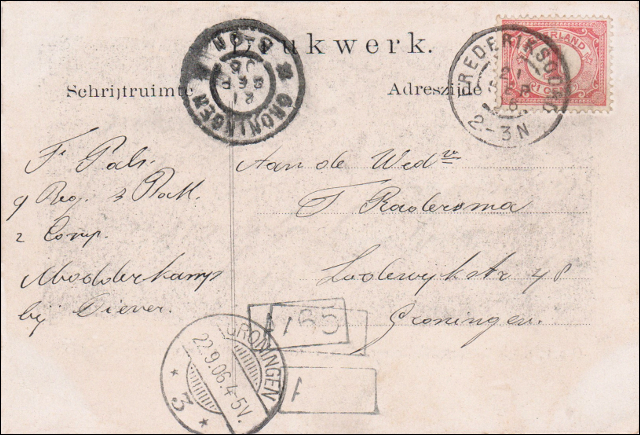 Drukwerk.
Schrijfruimte
Adreszijde
GRONINGEN
21 SEP 06
FREDERIKSOORD
21 SEP 06
2-3N
NEDERLAND
F. Pals.
9 Reg. 3 Batt.
2 Comp.
Modderkamp
bij Diever.
Aan de Wedve
T Radersma
Lodewijkstr 48
Groningen.
GRONINGEN
22.9.06.4-5V.
3
1